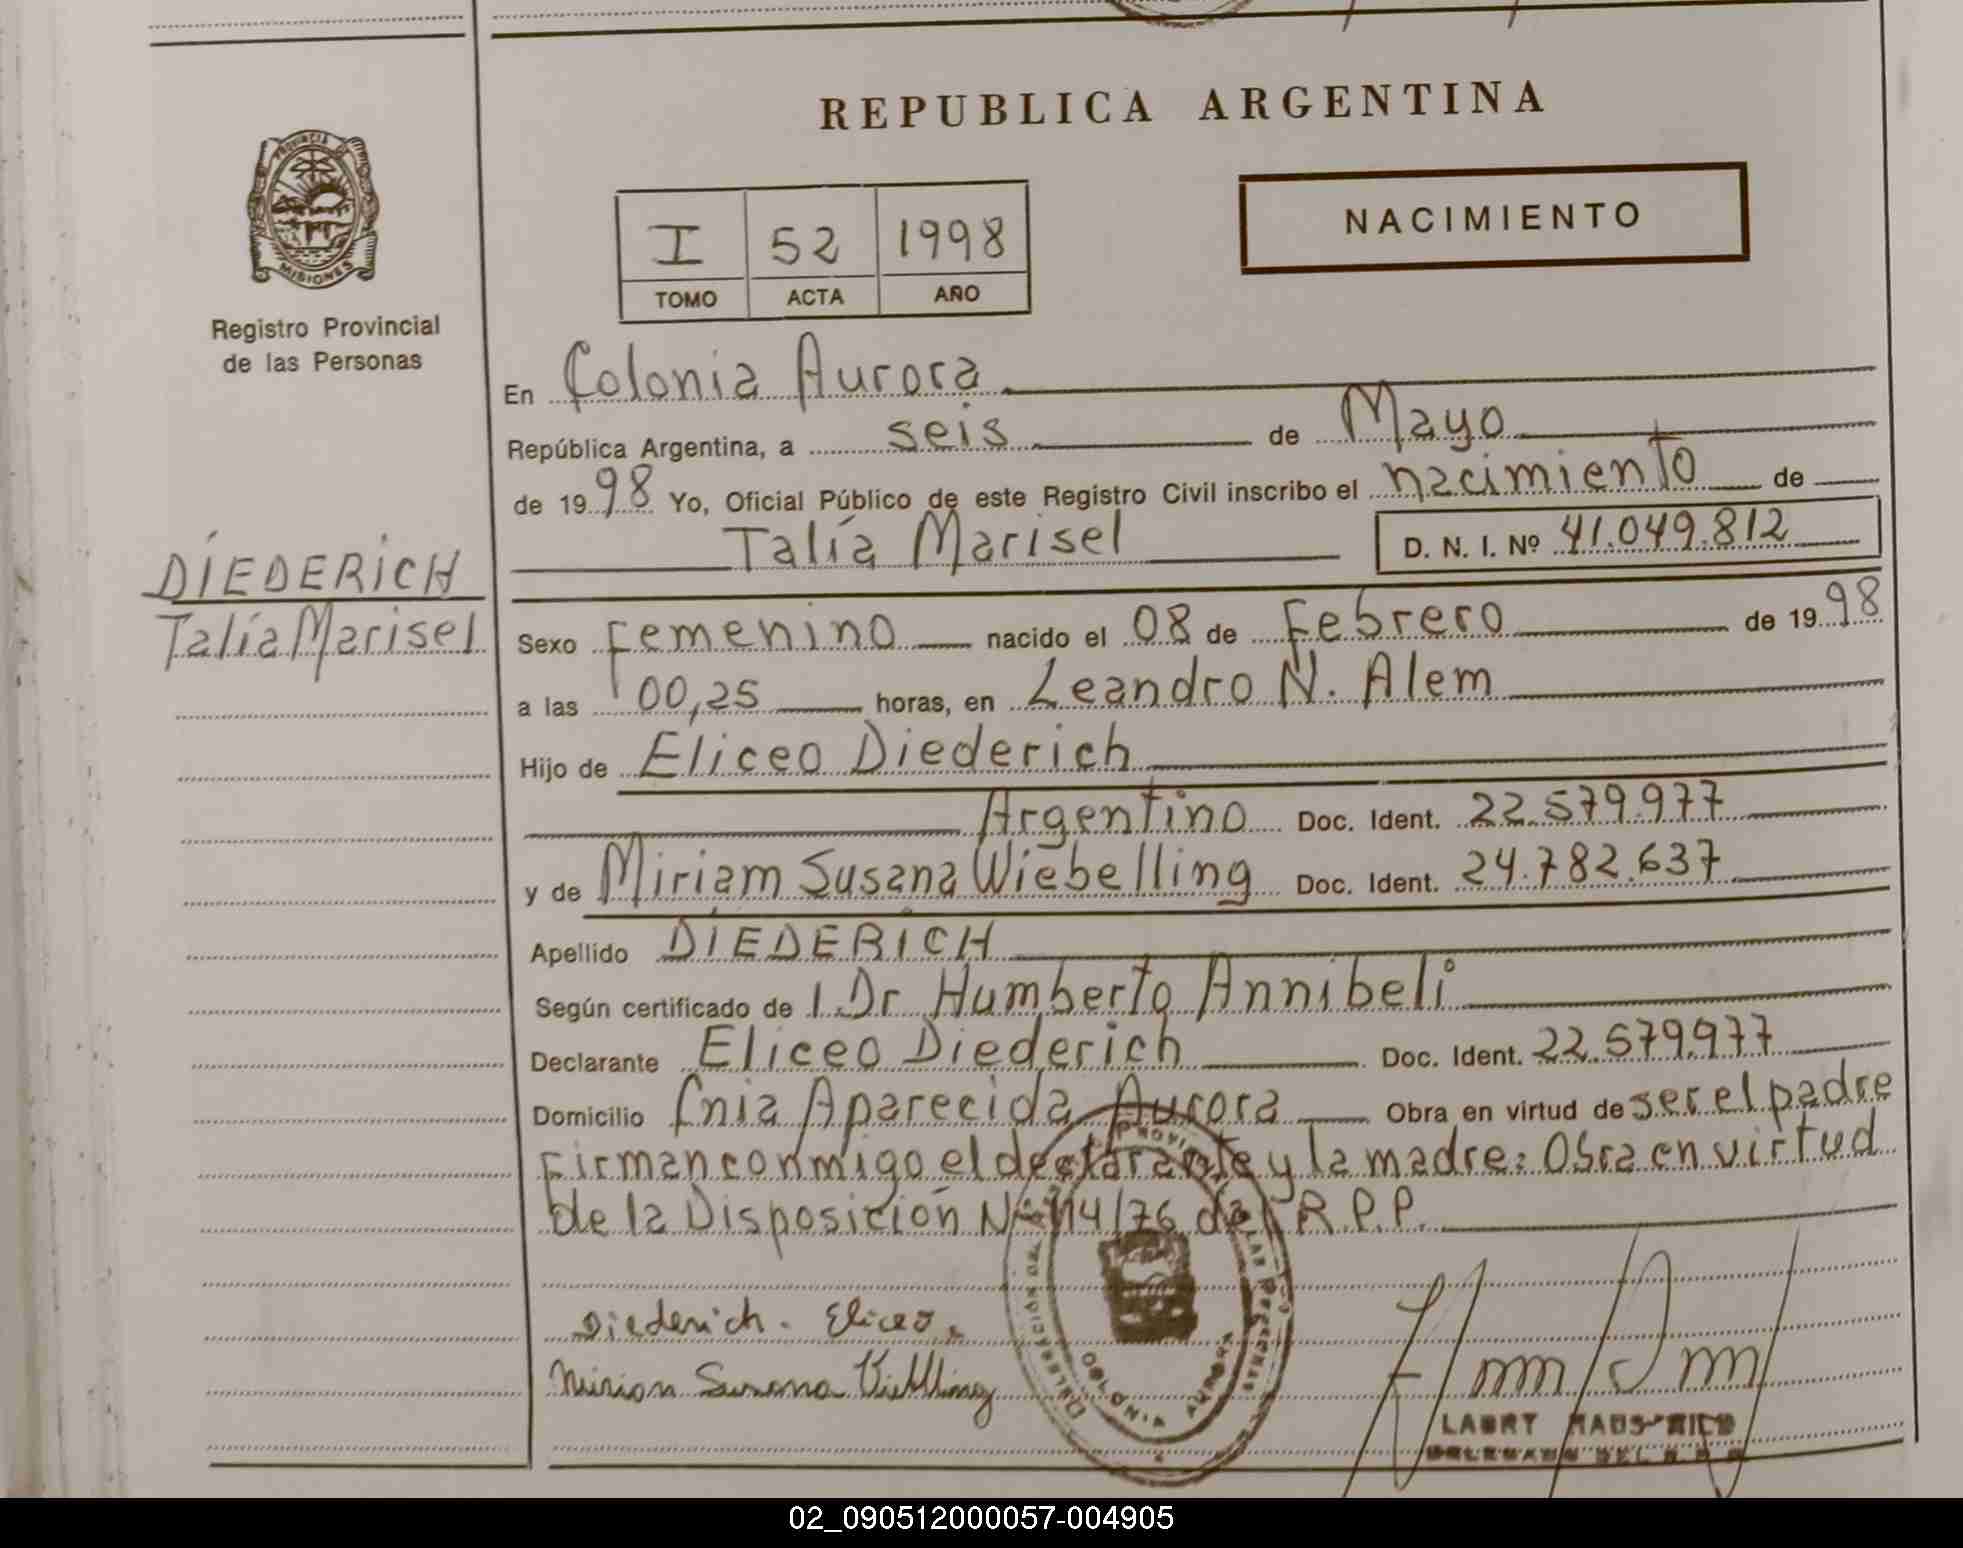 REPUBLICA ARGENTINA
PROVINCIA DE
MISIONES
Registro Provincial
de las Personas
NACIMIENTO
I 52 1998
TOMO ACTA AÑO
En Colonia Aurora
República Argentina, a seis de Mayo
de 1998 Yo, Oficial Público de este Registro Civil inscribo el nacimiento de
Talía Marisel D. N. I. Nº 41.049.812
DIEDERICH
Talía Marisel
Sexo Femenino nacido el 08 de Febrero de 1998
a las 00,25 horas, en Leandro N. Alem
Hijo de Eliceo Diederich
Argentino Doc. Ident. 22.579.977
y de Miriam Susana Wiebelling Doc. Ident. 24.782.637
Apellido DIEDERICH
Según certificado de l Dr Humberto Annibeli
Declarante Eliceo Diederich Doc. Ident. 22.579.977
Domicilio Cnia Aparecida Aurora Obra en virtud de ser el padre
Firman conmigo el declarante y la madre: Obra en virtud
de la Disposición Nº 114/76 del R.P.P.
Diederich. Eliceo.
Mirian Susana Wiebelling
COLONIA AURORA
DELEGADO DEL R.P.P.
02_090512000057-004905